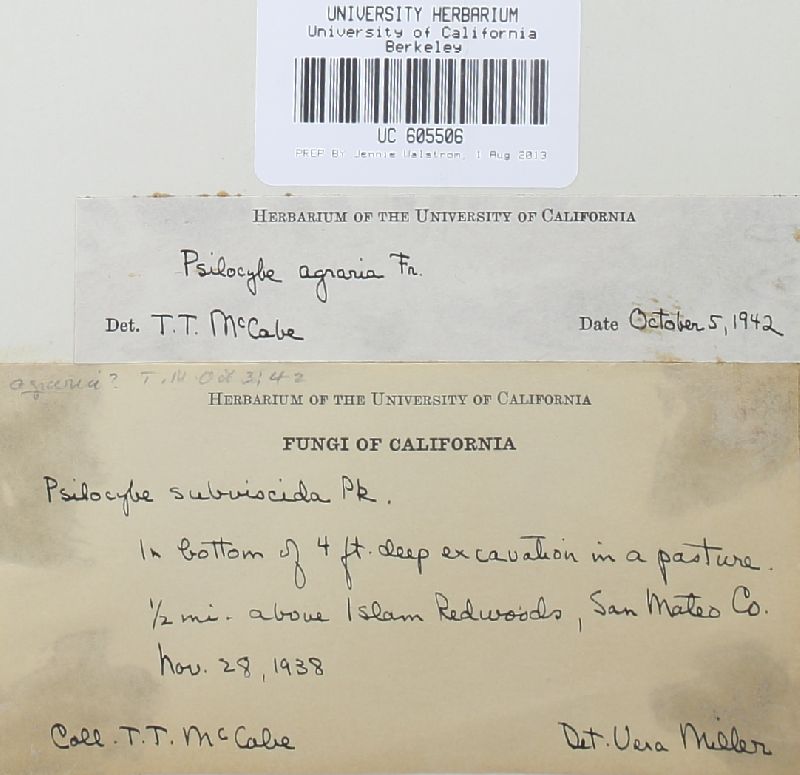 UNIVERSITY HERBARIUM
University of California
Berkeley
UC 605506
PREP BY Jennie Walstrom, 1 Aug 2013
HERBARIUM OF THE UNIVERSITY OF CALIFORNIA
Psilocybe agraria Fr.
Det. T.T. McCabe Date October 5, 1942
agraria? T. M Oct 3, 42
HERBARIUM OF THE UNIVERSITY OF CALIFORNIA
FUNGI OF CALIFORNIA
Psilocybe subviscida Pk.
In bottom of 4 ft. deep excavation in a pasture.
1/2 mi. above Islam Redwoods, San Mateo Co.
Nov. 28, 1938
Coll. T.T. McCabe Det. Vera Miller